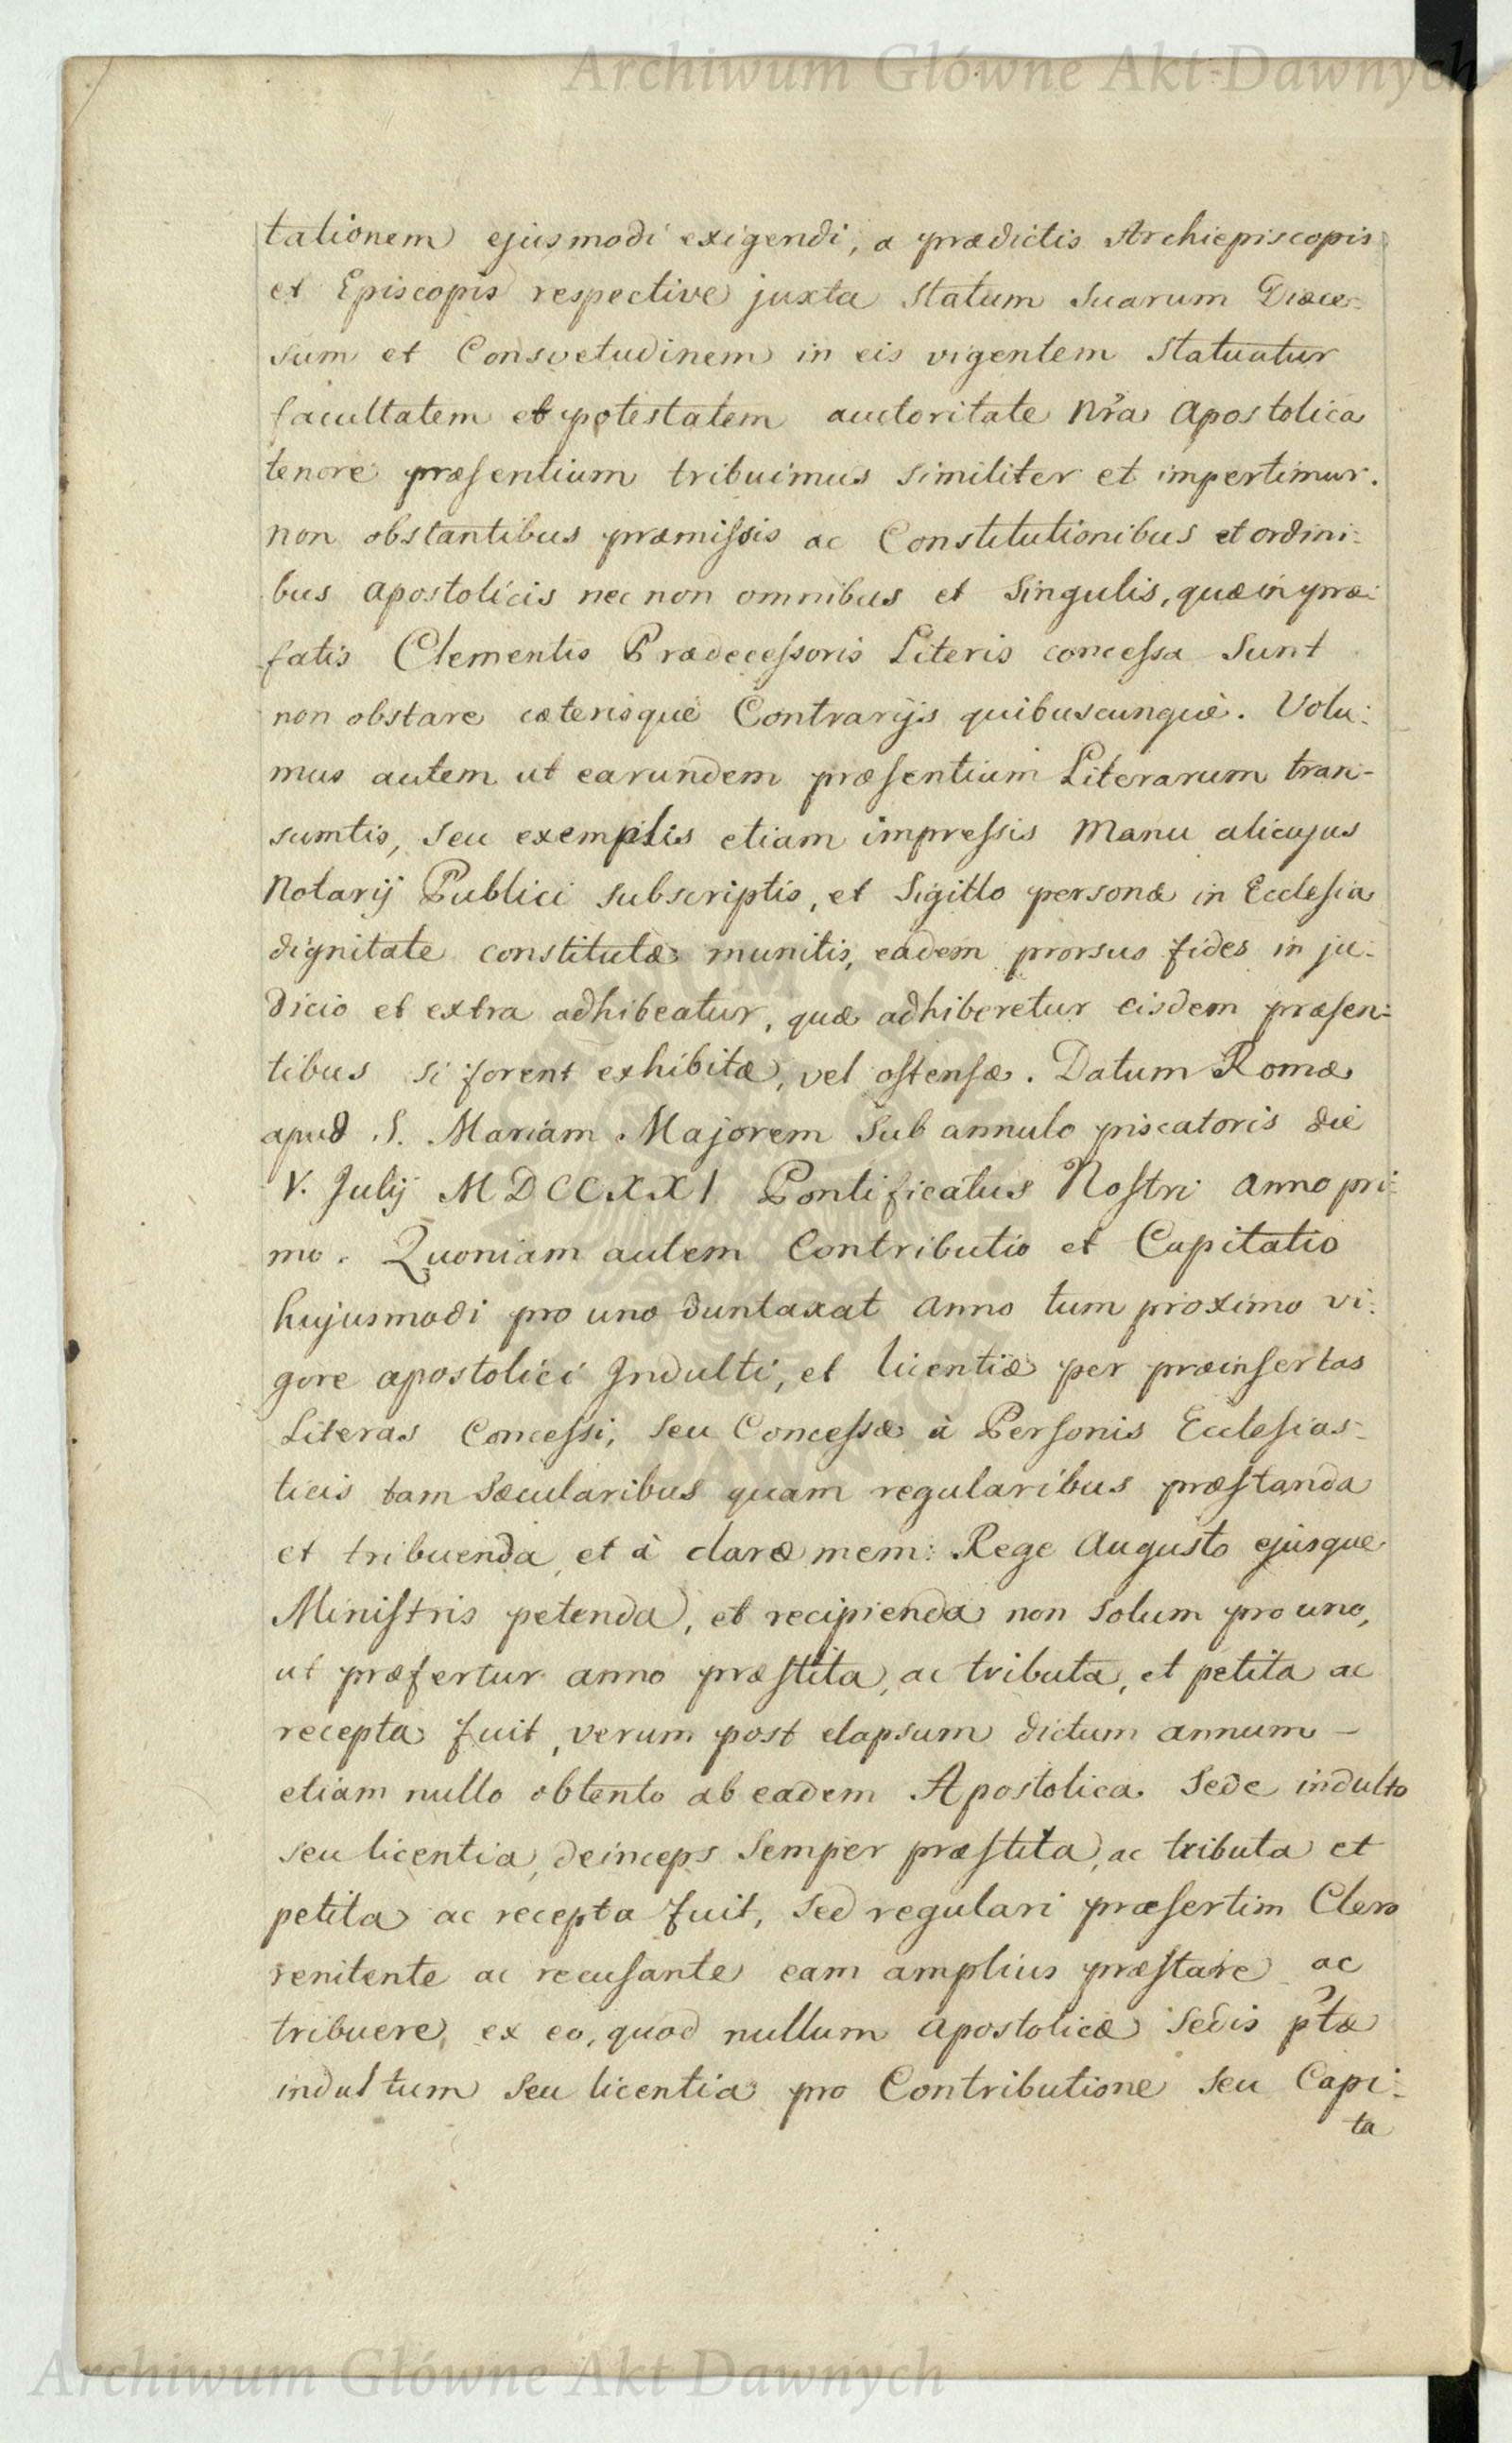 Archiwum Główne Akt Dawnych
tationem ejusmodi exigendi, a prædictis Archiepiscopis
et Episcopis respective juxta Statum Suarum Diæce-
sum et Consvetudinem in eis vigentem Statuatur
facultatem et potestatem auctoritate Nr̃a Apostolica
tenore præsentium tribuimus similiter et impertimur.
non obstantibus præmissis ac Constitutionibus et ordini:
bus Apostolicis nec non omnibus et Singulis, quæ in præ:
fatis Clementis Prædecessoris Literis concessa Sunt
non obstare cæterisque Contrarijs quibuscunque. Volu:
mus autem ut earundem præsentium Literarum tran-
sumtis, seu exemplis etiam impressis Manu alicujus
Notarij Publici subscriptis, et Sigillo personæ in Ecclesia
dignitate constitutæ munitis, eadem prorsus fides in ju:
dicio et extra adhibeatur, quæ adhiberetur eisdem præsen:
tibus si forent exhibitæ, vel ostensæ. Datum Romæ
apud S. Mariam Majorem Sub annulo piscatoris die
V. Julij MDCCXXI Pontificatus Nostri Anno pri:
mo. Quoniam autem Contributio et Capitatio
hujusmodi pro uno duntaxat Anno tum proximo vi:
gore apostolici Indulti, et licentiæ per præinsertas
Literas Concessi, seu Concessæ à Personis Ecclesias-
ticis tam Sæcularibus quam regularibus præstanda
et tribuenda, et à claræ mem: Rege Augusto ejusque
Ministris petenda, et recipienda non Solum pro uno,
ut præfertur anno præstita, ac tributa, et petita ac
recepta fuit, verum post elapsum dictum annum –
etiam nullo obtento ab eadem Apostolica Sede indulto
seu licentia, deinceps Semper præstita, ac tributa et
petita ac recepta fuit, Sed regulari præsertim Clero
renitente ac recusante eam amplius præstare ac
tribuere, ex eo, quod nullum Apostolicæ Sedis p̃tæ
indultum Seu licentia pro Contributione Seu Capi:
ta
Archiwum Główne Akt Dawnych